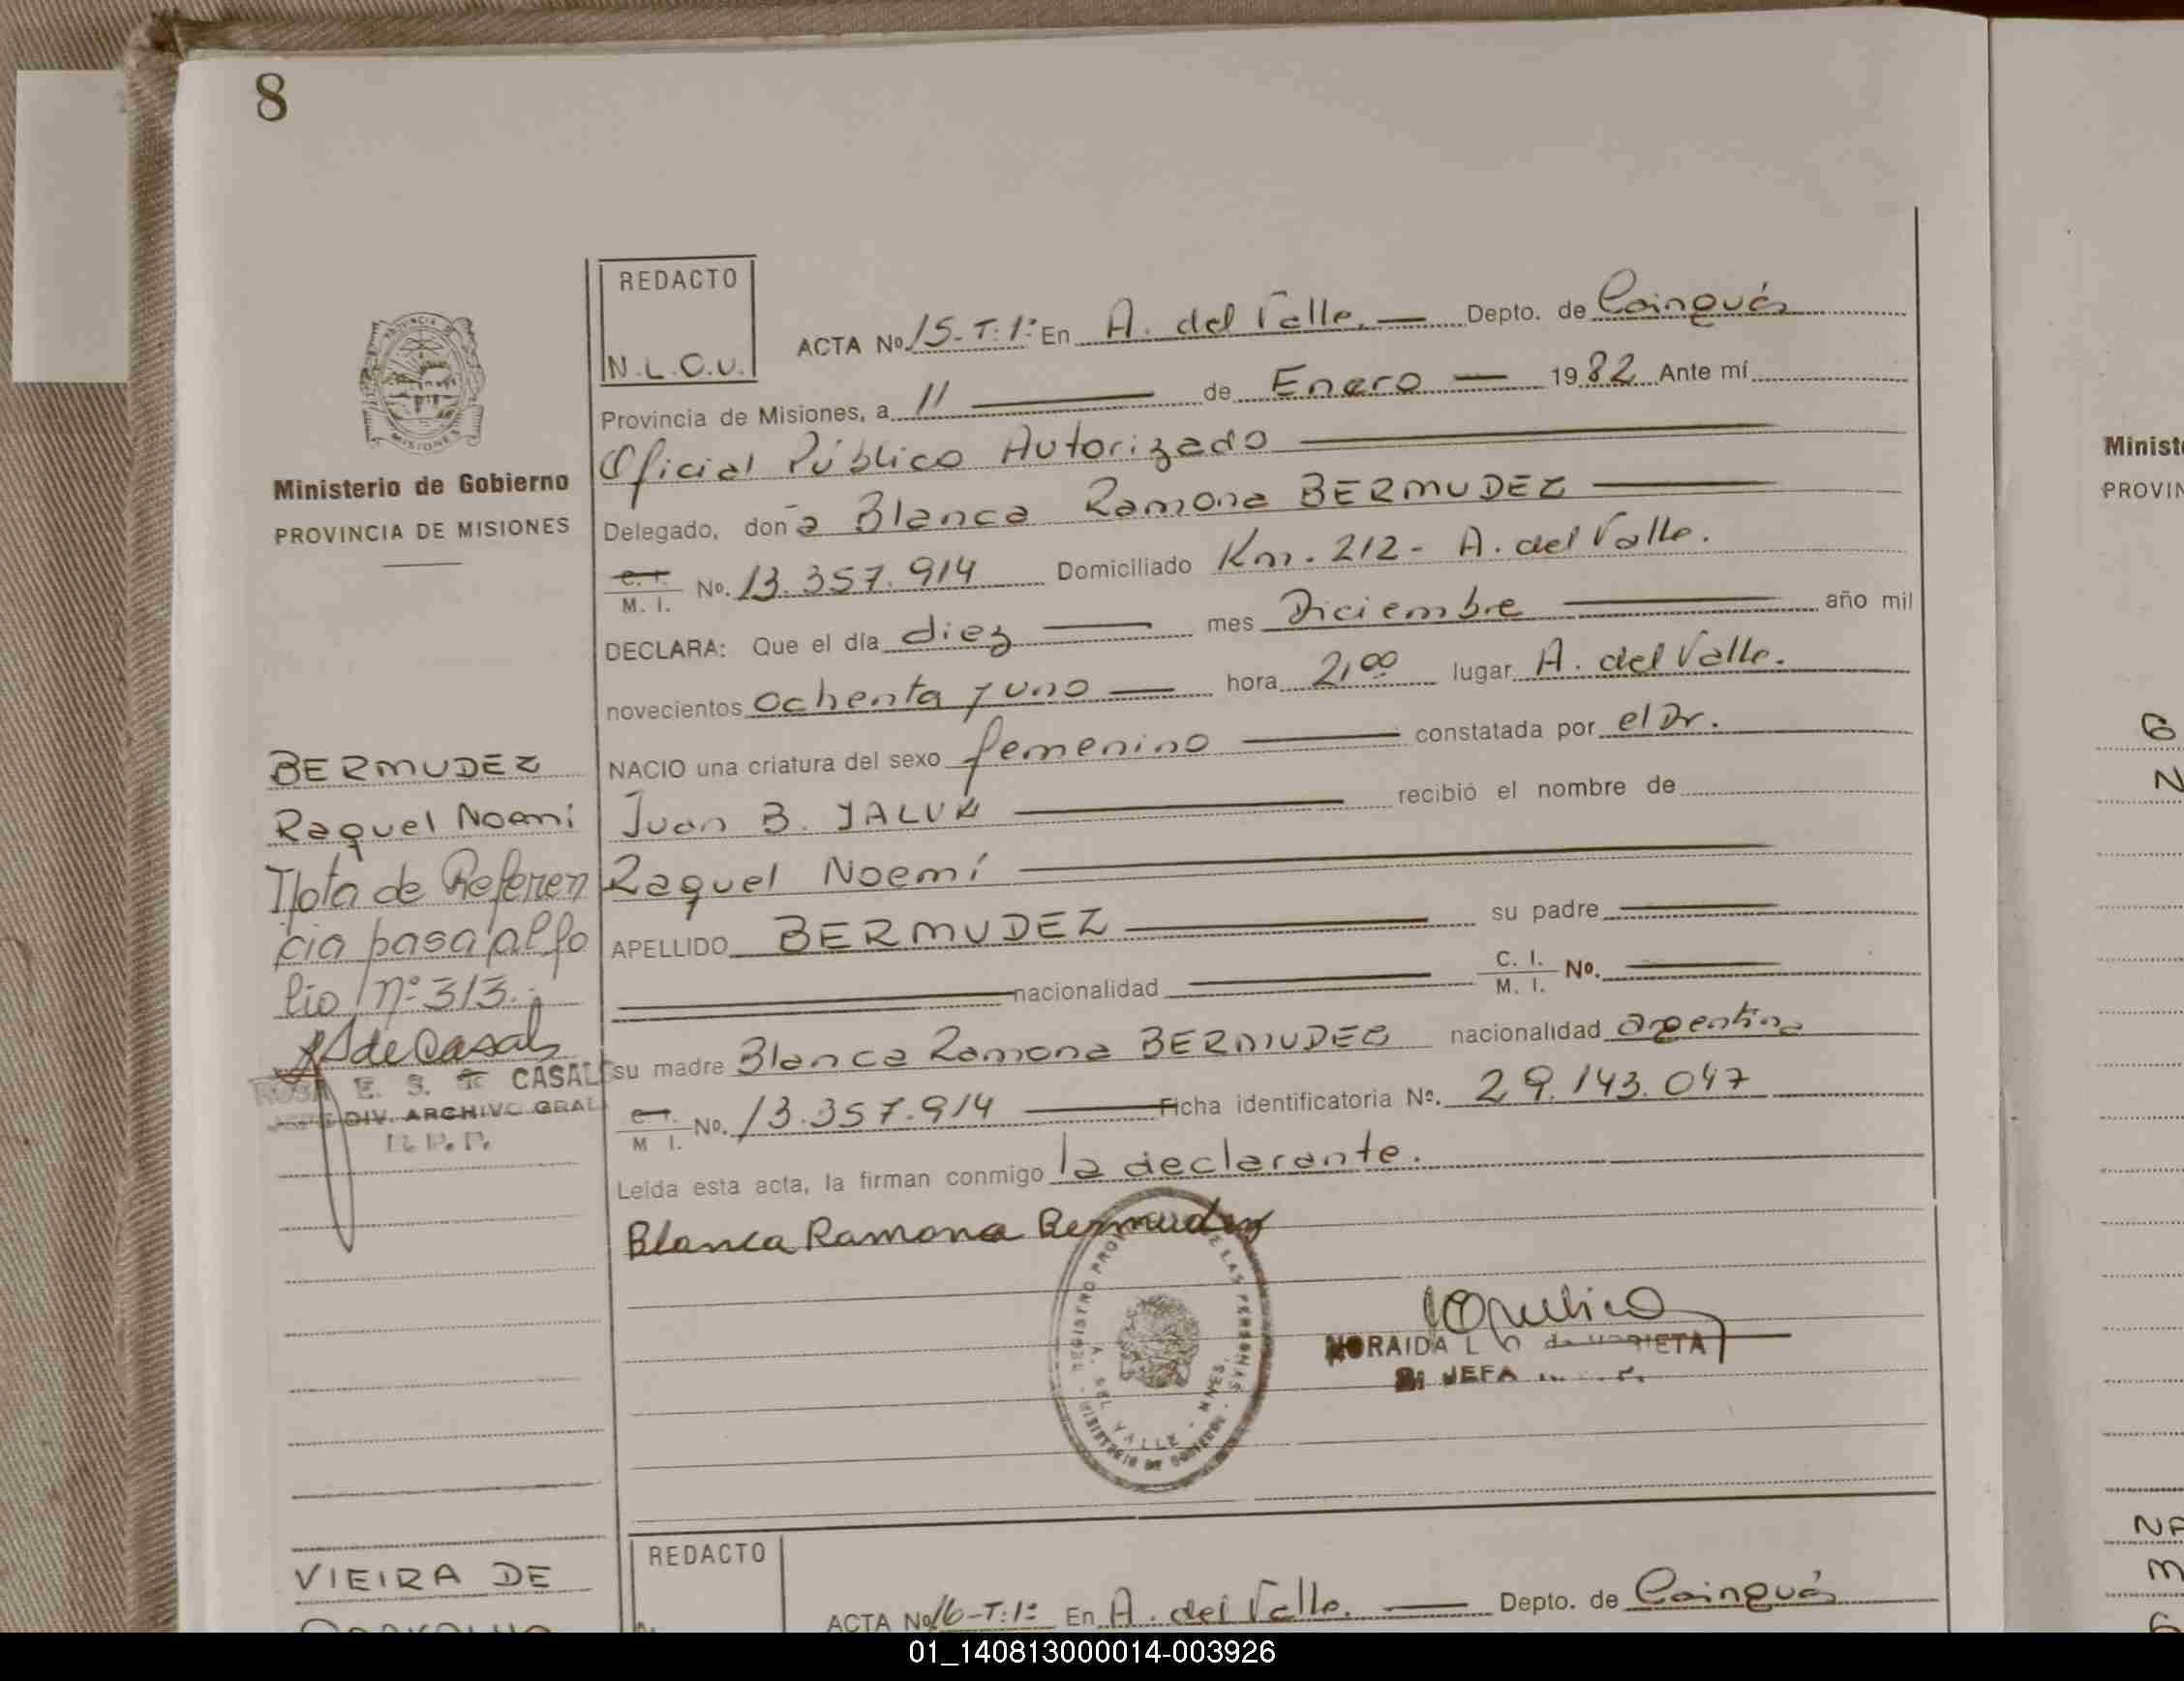 8
REDACTO
N.L.C.U.
ACTA No. 15-T:1º En A. del Valle. — Depto. de Cainguás
Provincia de Misiones, a 11 — de Enero — 1982 Ante mí
Oficial Público Autorizado
Delegado, don~a Blanca Ramona BERMUDEZ
C. I. M. I. No. 13.357.914 Domiciliado Km. 212 - A. del Valle.
DECLARA: Que el día diez — mes Diciembre — año mil
novecientos ochenta y uno — hora 2,00 lugar A. del Valle.
NACIO una criatura del sexo femenino — constatada por el Dr.
Juan B. YALUK — recibió el nombre de
Raquel Noemí
APELLIDO BERMUDEZ — su padre —
— nacionalidad — C. I. M. I. No. —
su madre Blanca Ramona BERMUDEZ nacionalidad argentina
C. I. M I. No. 13.357.914 — Ficha identificatoria No. 29.143.047
Leída esta acta, la firman conmigo la declarante.
Blanca Ramona Bermudez
REGISTRO DE LAS PERSONAS
A. DEL VALLE - MNES.
MINISTERIO DE GOBIERNO
NORAIDA L de URRIETA
JEFA
PROVINCIA DE
MISIONES
Ministerio de Gobierno
PROVINCIA DE MISIONES
BERMUDEZ
Raquel Noemi
Nota de Referen
cia pasa al fo
lio nº 313.-
de Casals
E. S. CASAL
DIV. ARCHIVO GRAL
R.P.P.
VIEIRA DE
REDACTO
ACTA No 16-T:1º En A. del Valle. — Depto. de Cainguás
Minist
PROVIN
B
N
NA
M
G
01_140813000014-003926